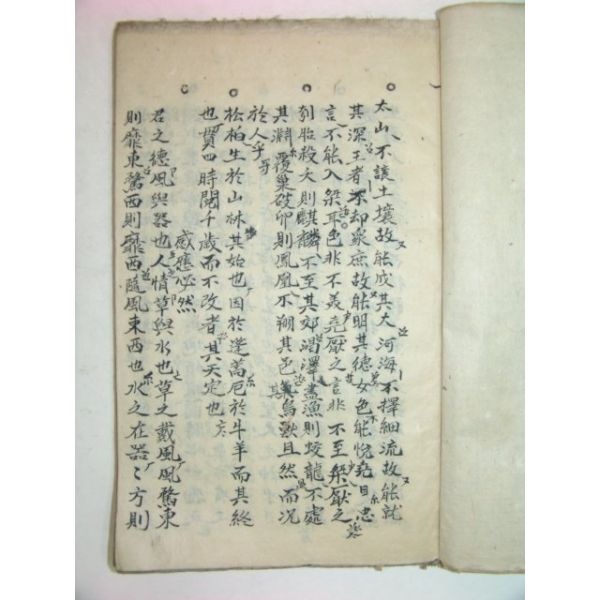 太山不讓土壤故能成其大河海不擇細流故能就
其深王者不却衆庶故能明其德女色能悅堯目忠
言不能入桀耳色非不美堯厭之言非不至桀厭之
刳胎殺夭則麒麟不至其郊渴澤盡漁則蛟龍不處
其淵覆巢破卵則鳳凰不翔其邑其鳥獸且然而况
於人乎
松柏生於山林其始也因於蓬蒿厄於牛羊而其終
也貫四時閱千歲而不改者其天定也
感應必然
君之德風與器也人情草與水也草之戴風風騖東
則靡東騖西則靡西隨風東西也水之在器器方則